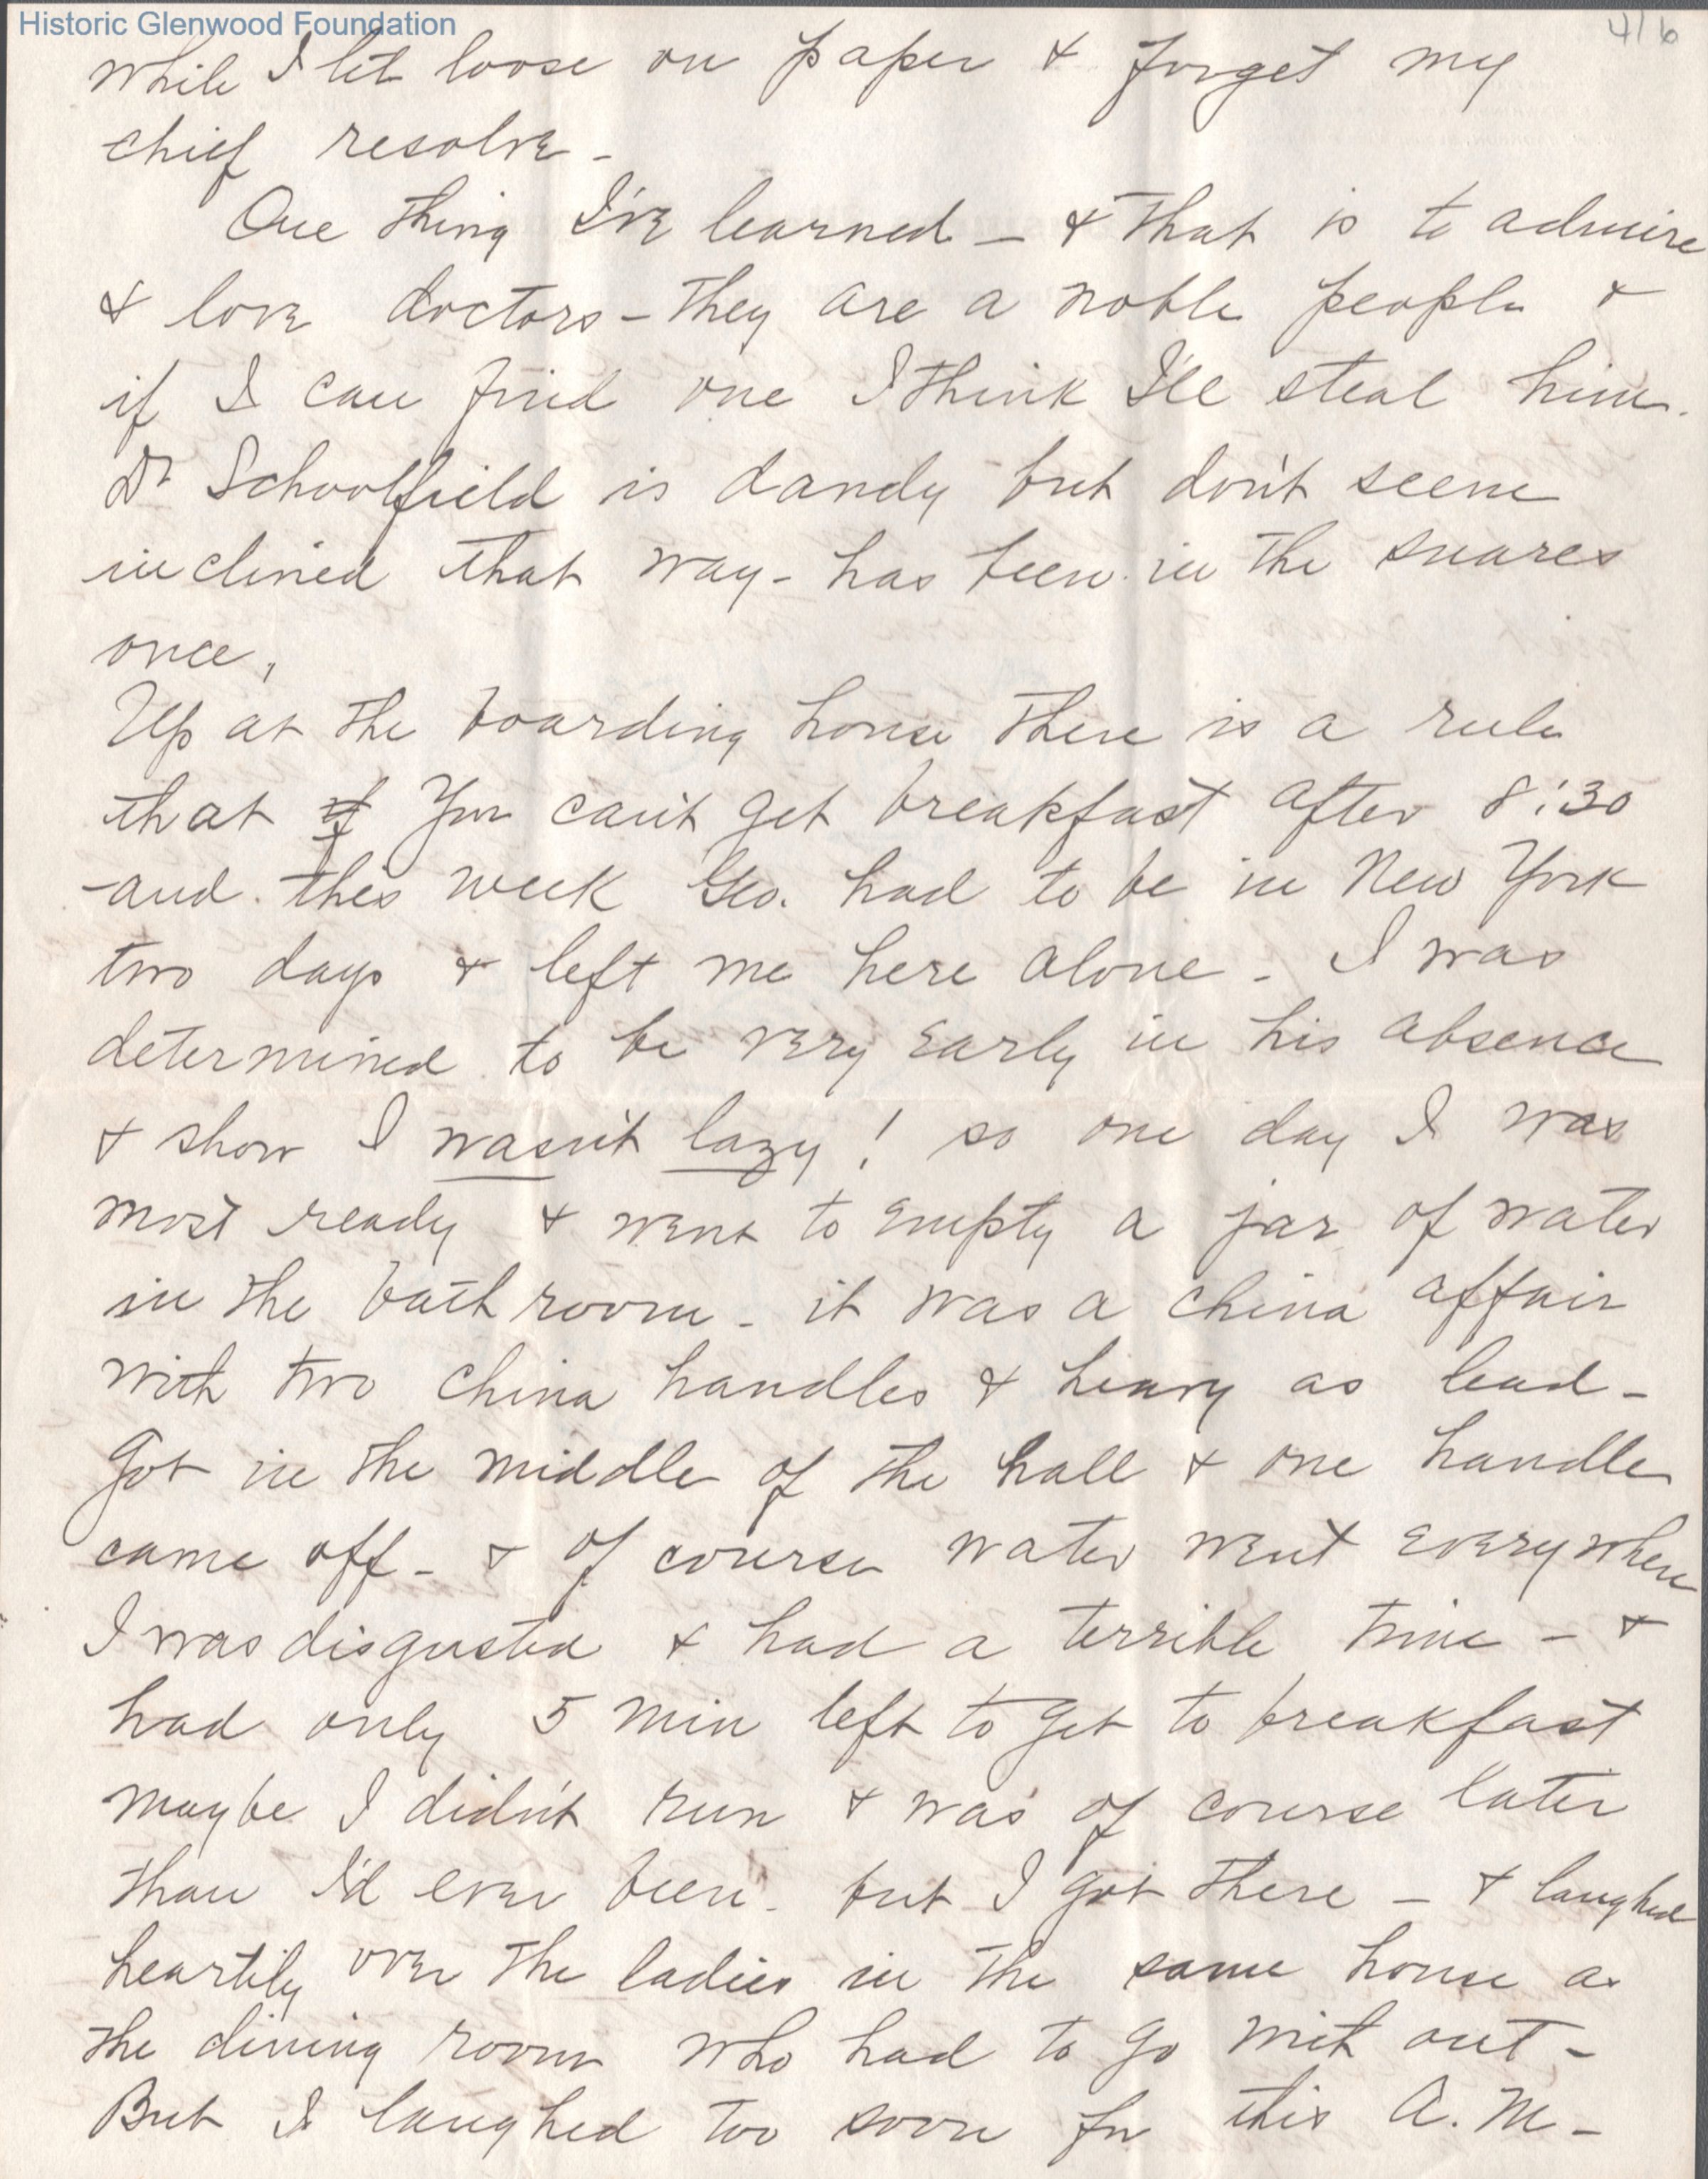 Historic Glenwood Foundation
4/6
while I let loose on paper & forget my
chief resolve -
One thing I've learned - & that is to admire
& love doctors - they are a noble people &
if I can find one I think I'll steal him.
Dr Schoolfield is dandy but don't seem
inclined that way - has been in the snares
once,
Up at the boarding house there is a rule
that if You can't get breakfast after 8:30
-and this week Geo. had to be in New York
two days & left me here alone - I was
determined to be very early in his absence
& show I wasn't lazy! so one day I was
most ready & went to empty a jar of water
in the bath room - it was a china affair
with two china handles & heavy as lead -
Got in the middle of the hall & one handle
came off - & of course water went everywhere
I was disgusted & had a terrible time - &
had only 5 min left to get to breakfast
maybe I didn't run & was of course later
than I'd ever been - but I got there - & laughed
heartily over the ladies in the same house as
the dining room who had to go with out -
But I laughed too soon for this A.M. -